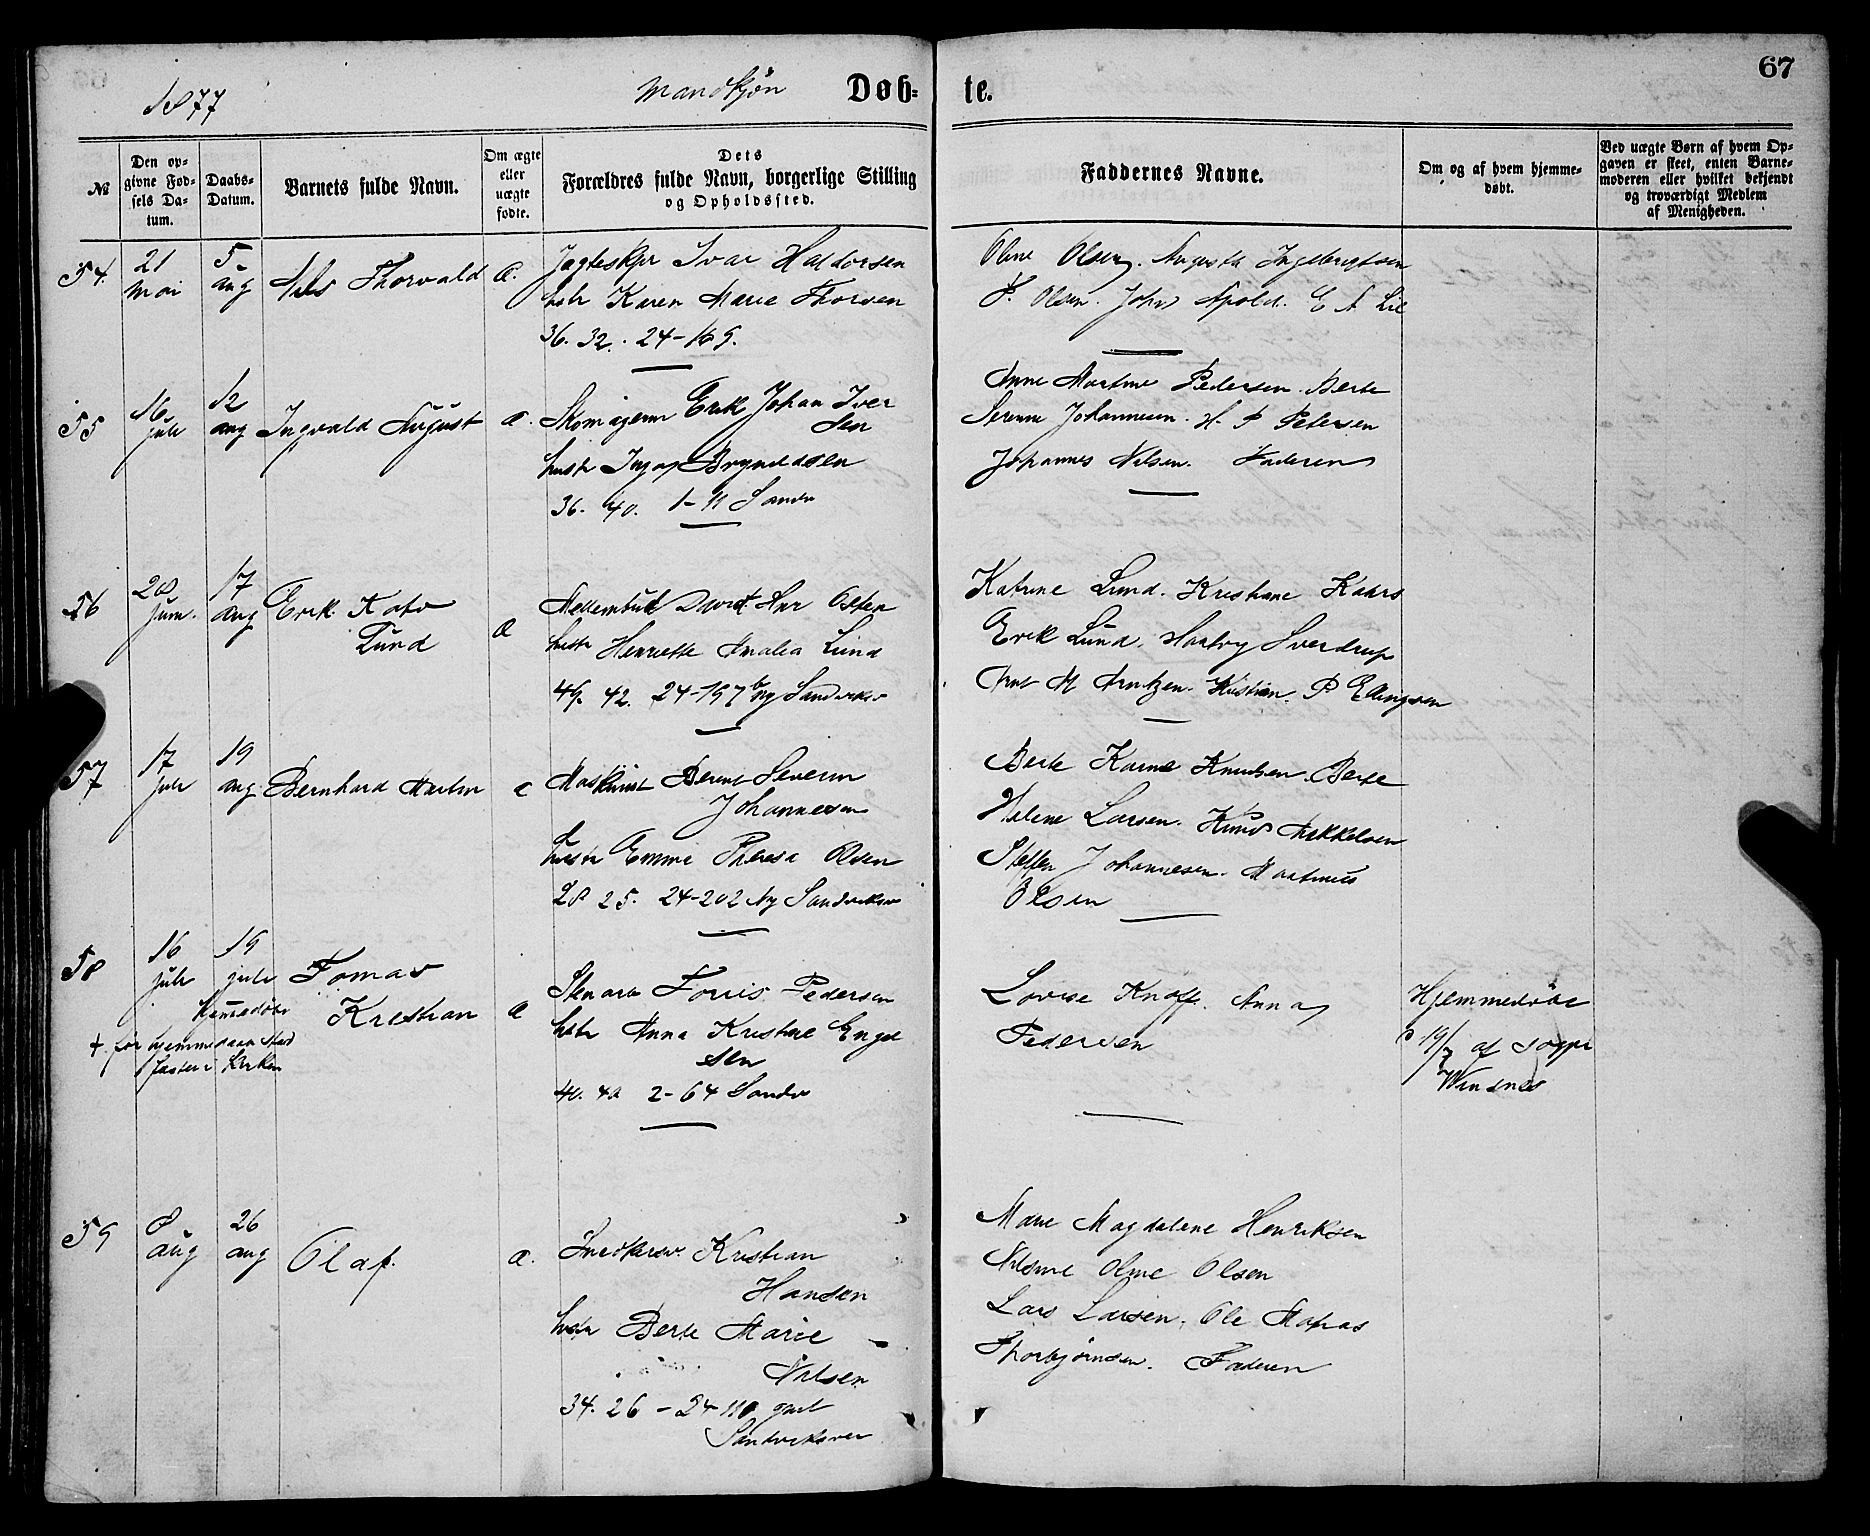 1877 Mandkjøn Døb-te. 67
№
Den op-
givne Fød-
sels Da-
tum.
Daabs-
Datum.
Barnets fulde Navn.
Om ægte
eller
uægte
fødte.
Dets
Forældres fulde Navn, borgerlige Stilling
og Opholdssted.
Faddernes Navne.
Om og af hvem hjemme-
døbt.
Ved uægte Børn af hvem Op-
gaven er skeet, enten Barne-
moderen eller hvilket bekjendt
og troværdigt Medlem
af Menigheden.
54.
21
Mai
5
aug
Nils Thorvald
æ.
Jægteskpr Ivar Haldorsen
hstr Karen Marie Thorsen
36. 32. 24-169.
Oline Olsen. Augusta Ingebrigtsen
T. Olsen. John Apold. E A Lie
55
16
juli
12
aug
Ingvald August
æ.
Skomagerm Erik Johan Iver
sen
hustr Inga Brynildsen
36. 40. 1-11 Sandv
Anne Martine Pedersen. Berte
Serine Johannesen. H. P Petersen
Johannes Nilsen. Faderen
56
28
juni.
17
aug
Erik Kato
Lund
æ
David Olsen
hustr Henriette Amalia Lund
49. 42. 24-197 Ny Sandviksv
Katrine Lund. Kristiane Kahrs
Erik Lund. Hartvig Sverdrup
Arnt M Arntzen. Kristian P Ellingsen
57
17
juli
19
aug
Bernhard Martin
æ
Maskinist Bernt Severin
Johannesen
hustr Emma Theresa Olsen
28 25. 24-202 Ny Sandviksv
Berte Karine Knudsen. Berte
Helene Larsen. Knud Mikkelsen
Steffen Johannesen. Martinus
Olsen
58
16
juli
19
juli
hjemmedøbt
+ før hjemmedaab stad
fæstet i Kirken
Tomas
Kristian
æ
Stenarb Torris Pedersen
hstr Anna Kristine Engel
sen
40. 40 2-64 Sandv
Lovise Knoff. Anna
Pedersen
Hjemmedøbt
d 19/7 af sogpr
Windnes
59
8
aug
26
aug
Olaf.
æ.
Snedkersv. Kristian
Hansen
hstr Berte Marie
Nilsen
34. 26 - 24-110 gml
Sandviksvei
Marie Magdalene Henriksen
Nilsine Oline Olsen
Lars Larsen. Ole Matias
Thorbjørnsen. Faderen